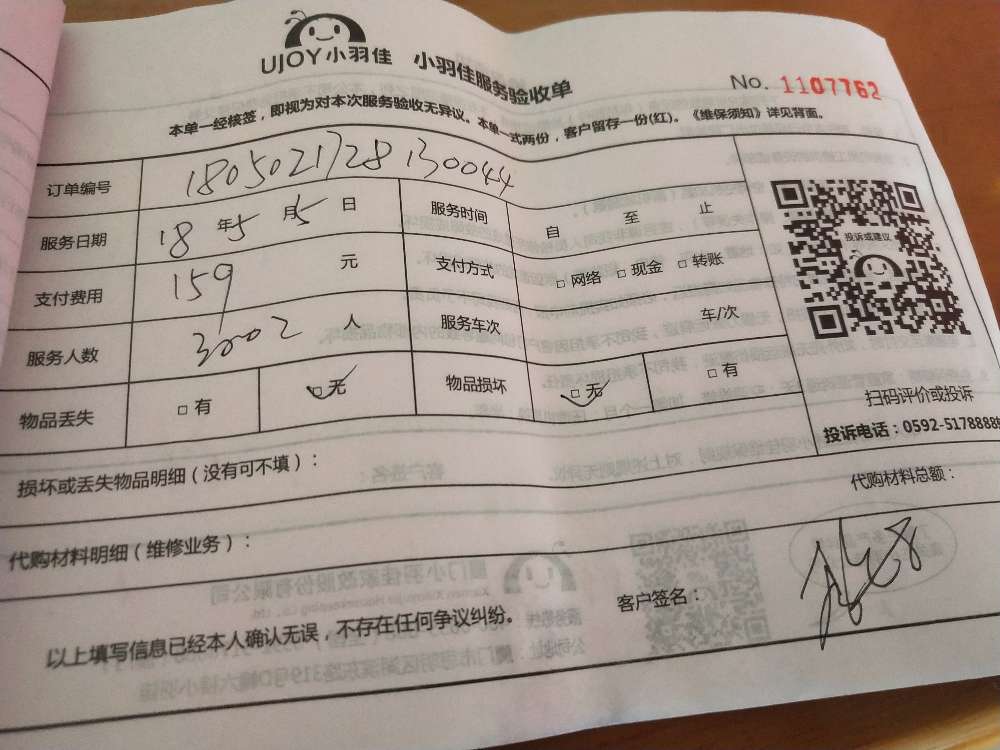 UJOY小羽佳 小羽佳服务验收单
No. 1107762
本单一经核签，即视为对本次服务验收无异议。本单一式两份，客户留存一份(红)。《维保须知》详见背面。
订单编号 1805021728130044
服务日期 18 年 5 月 5 日 服务时间 自 至 止
支付费用 159 元 支付方式 □ 网络 □ 现金 □ 转账
服务人数 人 服务车次 车/次
物品丢失 □ 有 □ 无 物品损坏 □ 无 □ 有
投诉或建议
扫码评价或投诉
投诉电话：0592-5178888
损坏或丢失物品明细（没有可不填）：
代购材料总额：
代购材料明细（维修业务）：
以上填写信息已经本人确认无误，不存在任何争议纠纷。
客户签名：